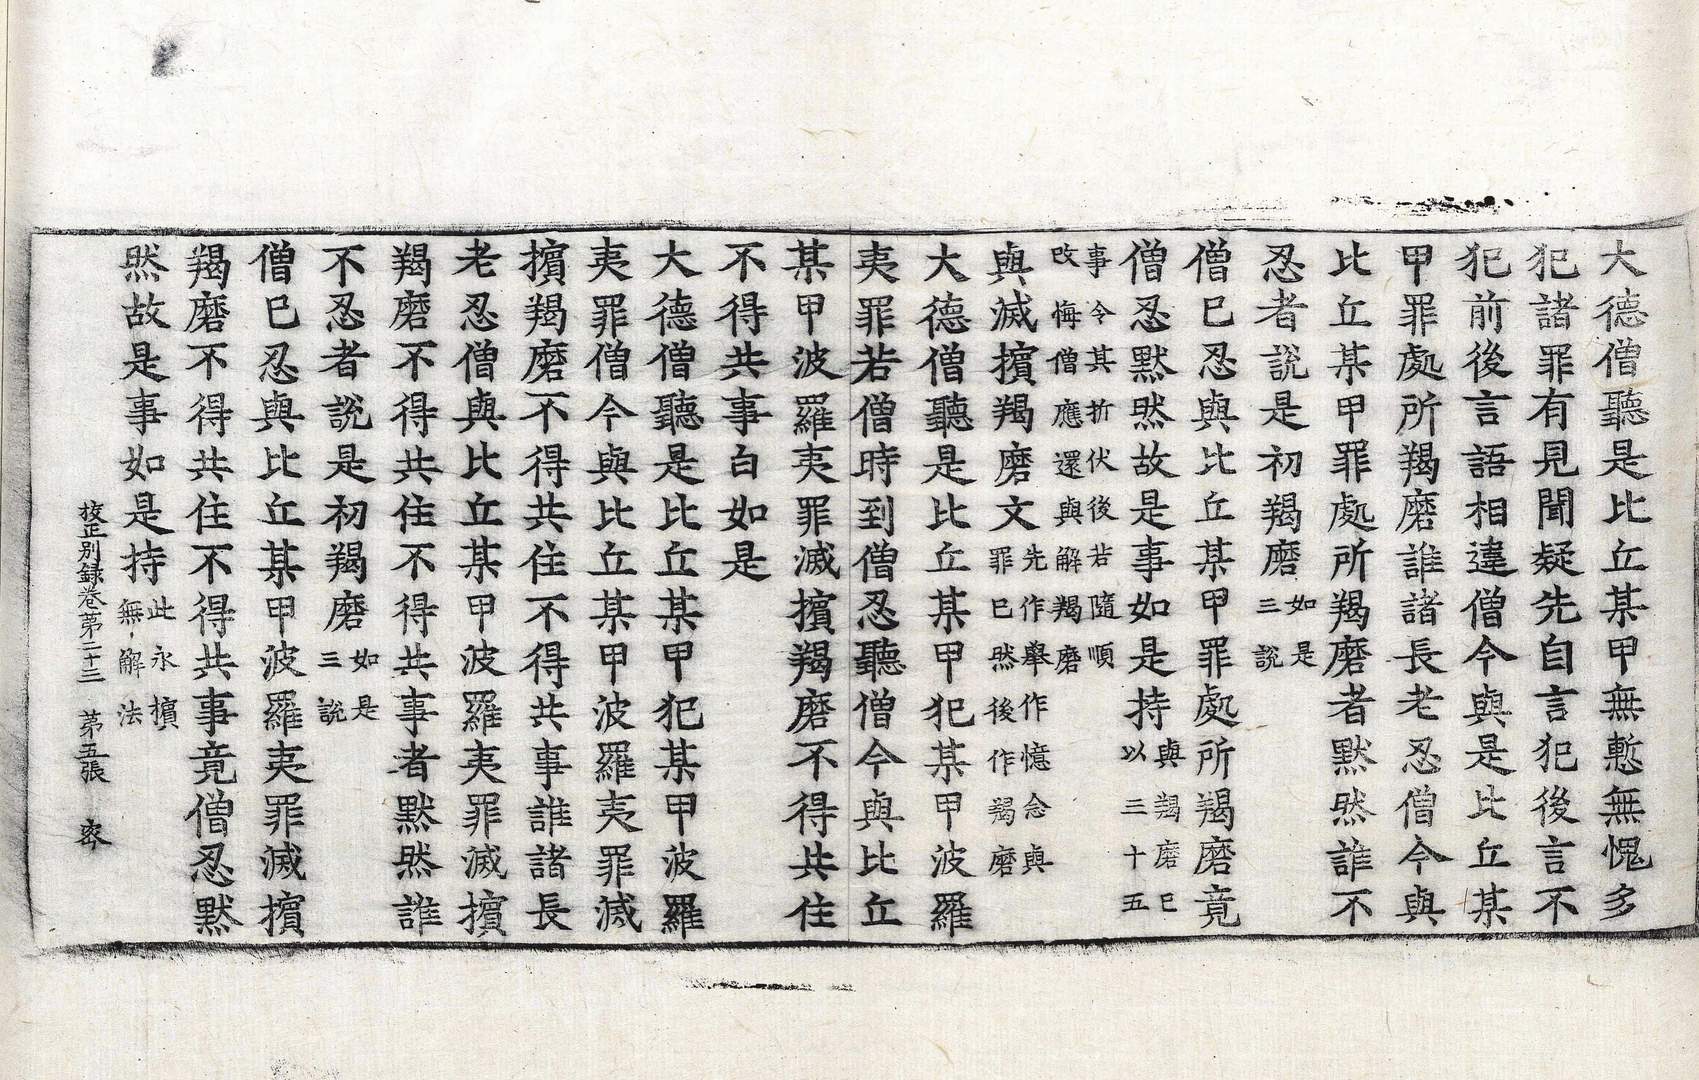 大德僧聽是比丘某甲無慙無愧多
犯諸罪有見聞疑先自言犯後言不
犯前後言語相違僧今與是比丘某
甲罪處所羯磨誰諸長老忍僧今與
比丘某甲罪處所羯磨者默然誰不
忍者說是初羯磨如是三說
僧已忍與比丘某甲罪處所羯磨竟
僧忍默然故是事如是持與羯磨已以三十五
事令其折伏後若隨順改悔僧應還與解羯磨
與滅擯羯磨文先作舉作憶念與罪已然後作羯磨
大德僧聽是比丘某甲犯某甲波羅
夷罪若僧時到僧忍聽僧今與比丘
某甲波羅夷罪滅擯羯磨不得共住
不得共事白如是
大德僧聽是比丘某甲犯某甲波羅
夷罪僧今與比丘某甲波羅夷罪滅
擯羯磨不得共住不得共事誰諸長
老忍僧與比丘某甲波羅夷罪滅擯
羯磨不得共住不得共事者默然誰
不忍者說是初羯磨如是三說
僧已忍與比丘某甲波羅夷罪滅擯
羯磨不得共住不得共事竟僧忍默
然故是事如是持此永擯無解法
校正別録卷第二十三 第五張 容